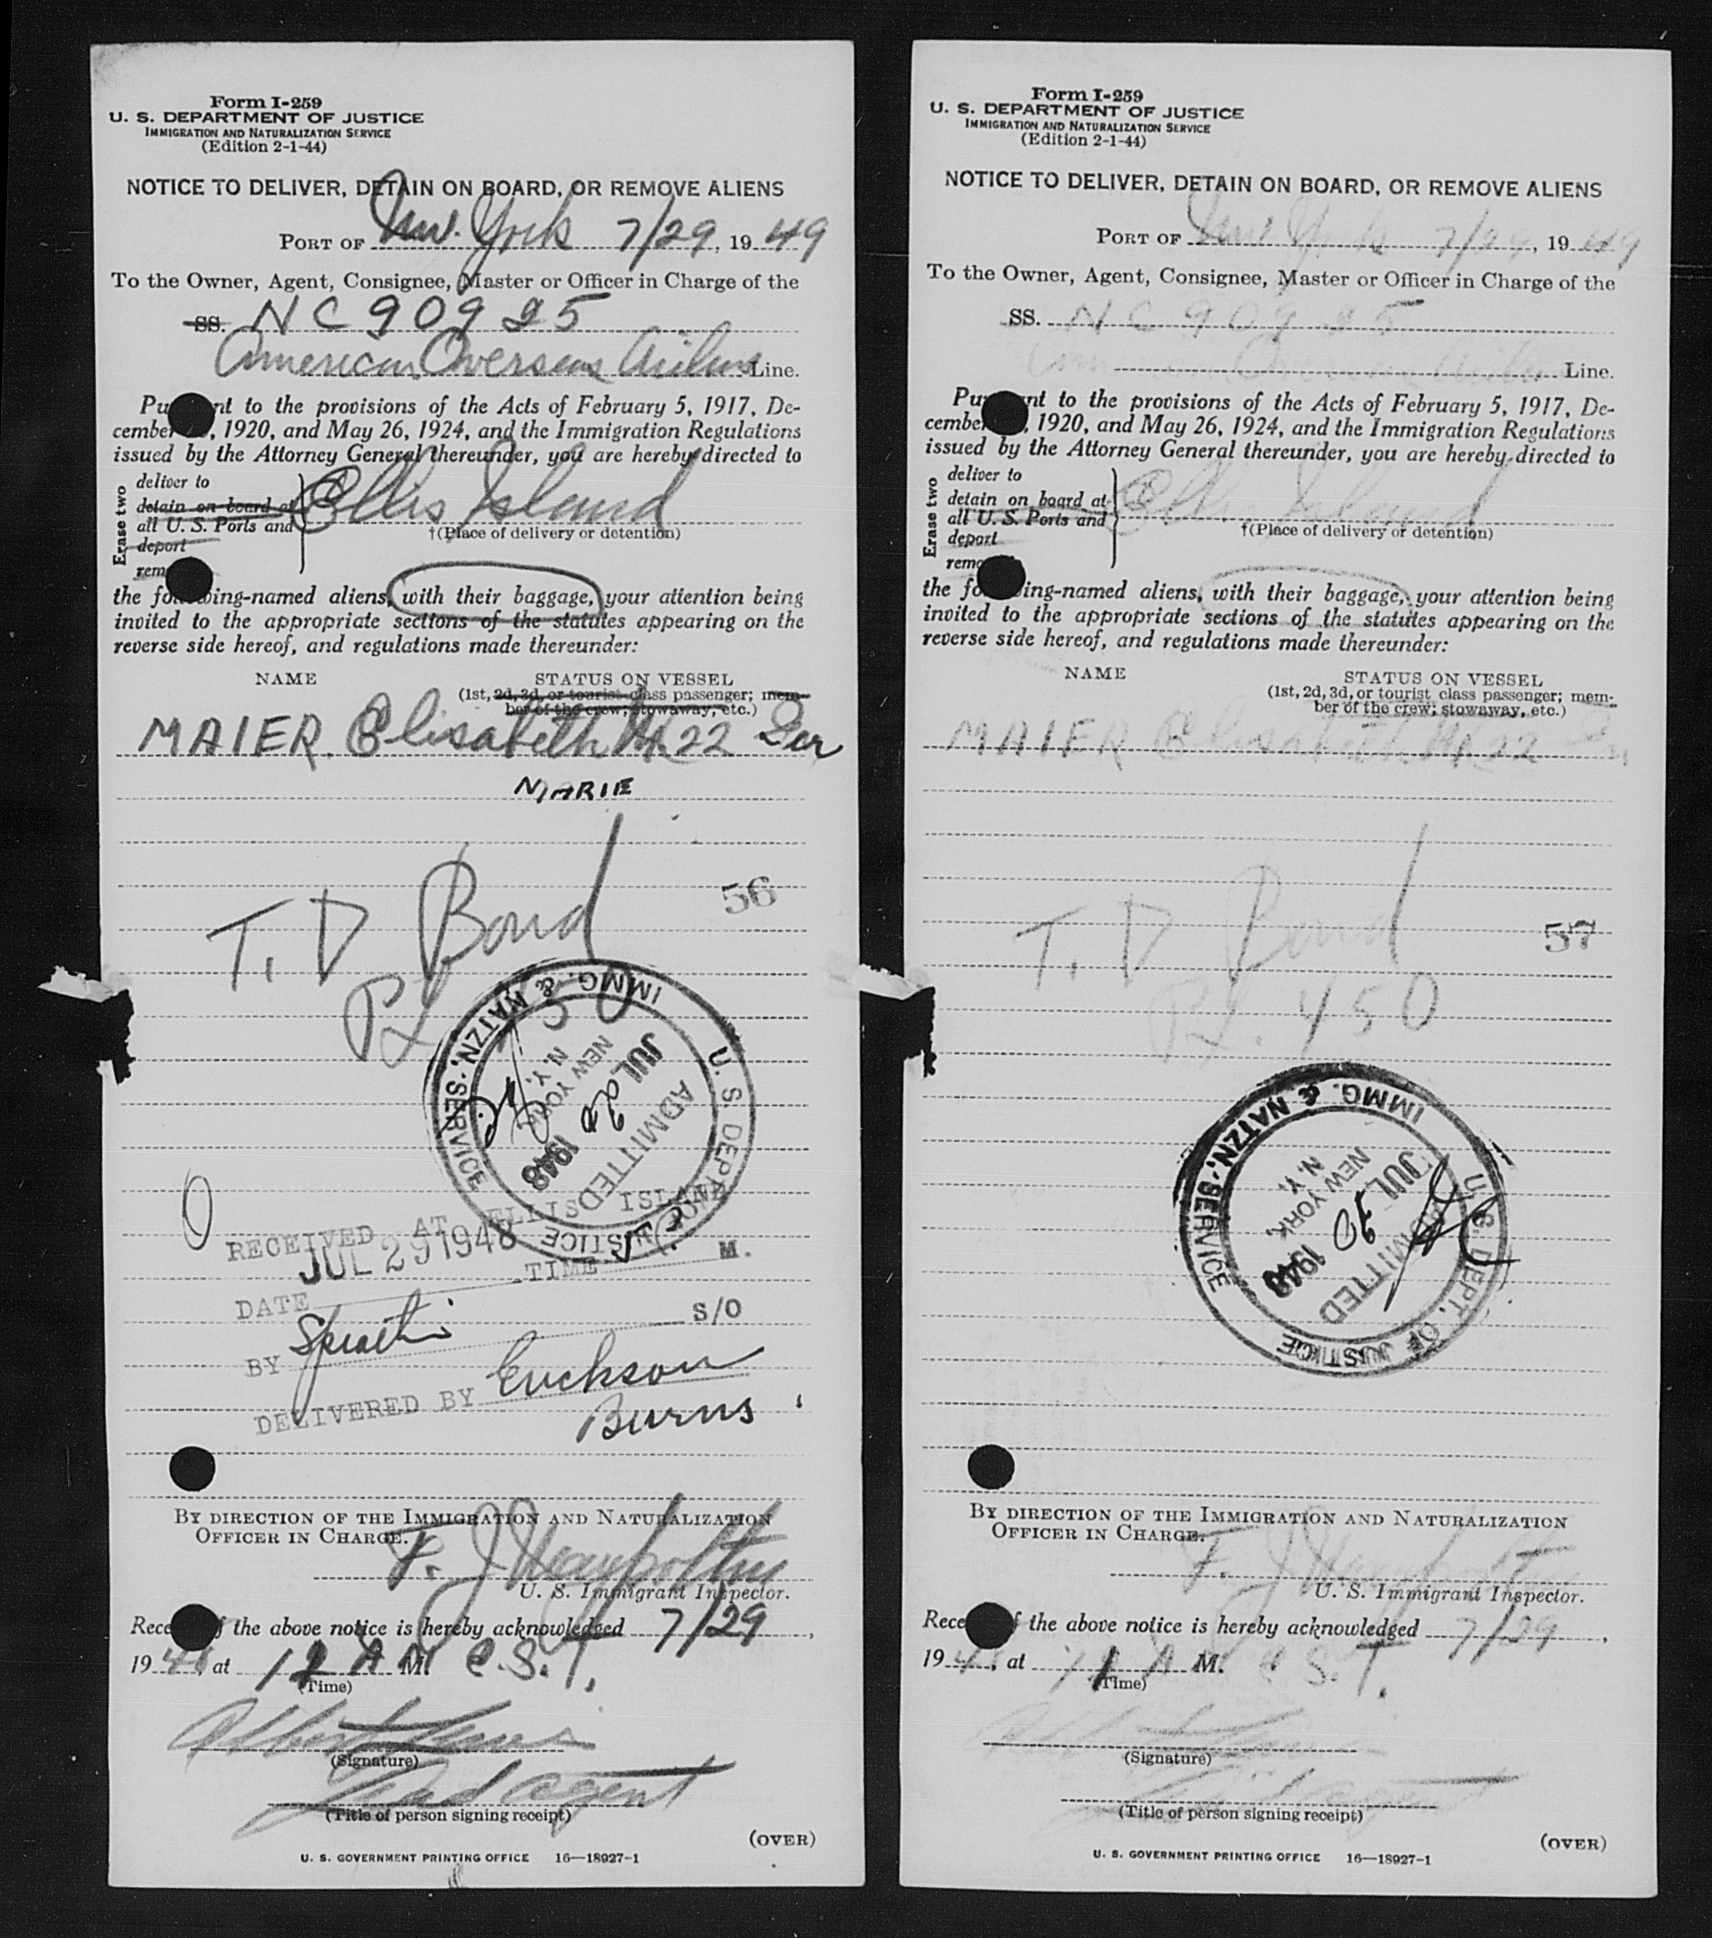 Form I-259
U. S. DEPARTMENT OF JUSTICE
IMMIGRATION AND NATURALIZATION SERVICE
(Edition 2-1-44)
NOTICE TO DELIVER, DETAIN ON BOARD, OR REMOVE ALIENS
PORT OF New York 7/29, 19 49
To the Owner, Agent, Consignee, Master or Officer in Charge of the
SS. NC90925
American Overseas Airlines Line.
Pu nt to the provisions of the Acts of February 5, 1917, De-
cember , 1920, and May 26, 1924, and the Immigration Regulations
issued by the Attorney General thereunder, you are hereby directed to
Erase two
deliver to
detain on board at
all U. S. Ports and
deport
rem
Ellis Island
†(Place of delivery or detention)
the fo ing-named aliens, with their baggage, your attention being
invited to the appropriate sections of the statutes appearing on the
reverse side hereof, and regulations made thereunder:
NAME STATUS ON VESSEL
(1st, 2d, 3d, or tourist class passenger; mem-
ber of the crew; stowaway, etc.)
MAIER, Elisabeth 22 Ger
MARIE
56
T. D Bond
U. S. DEPT. OF JUSTICE
IMMG. & NATZN. SERVICE
ADMITTED
JUL 1948
NEW YORK,
N. Y.
RECEIVED AT ELLIS ISLAND
JUL 29 1948
DATE TIME M.
BY S/O
DELIVERED BY Erickson
Burns
BY DIRECTION OF THE IMMIGRATION AND NATURALIZATION
OFFICER IN CHARGE.
F. J.
U. S. Immigrant Inspector.
Rece f the above notice is hereby acknowledged 7/29,
1948, at 12 A M. E.S.T.
(Time)
Albert
(Signature)
Lead Agent
(Title of person signing receipt)
(OVER)
U. S. GOVERNMENT PRINTING OFFICE 16—18927-1
Form I-259
U. S. DEPARTMENT OF JUSTICE
IMMIGRATION AND NATURALIZATION SERVICE
(Edition 2-1-44)
NOTICE TO DELIVER, DETAIN ON BOARD, OR REMOVE ALIENS
PORT OF New York 7/29, 19 49
To the Owner, Agent, Consignee, Master or Officer in Charge of the
SS. NC90925
American Overseas Airlines Line.
Pu nt to the provisions of the Acts of February 5, 1917, De-
cember , 1920, and May 26, 1924, and the Immigration Regulations
issued by the Attorney General thereunder, you are hereby directed to
Erase two
deliver to
detain on board at
all U. S. Ports and
deport
remo
Ellis Island
†(Place of delivery or detention)
the fo ing-named aliens, with their baggage, your attention being
invited to the appropriate sections of the statutes appearing on the
reverse side hereof, and regulations made thereunder:
NAME STATUS ON VESSEL
(1st, 2d, 3d, or tourist class passenger; mem-
ber of the crew; stowaway, etc.)
MAIER Elisabeth 22 Ger
T. D Bond
57
450
U. S. DEPT. OF JUSTICE
IMMG. & NATZN. SERVICE
ADMITTED
JUL 30 1948
NEW YORK,
N. Y.
BY DIRECTION OF THE IMMIGRATION AND NATURALIZATION
OFFICER IN CHARGE.
F. J.
U. S. Immigrant Inspector.
Rece f the above notice is hereby acknowledged 7/29,
1948, at A M. S.T.
(Time)
Albert
(Signature)
Agent
(Title of person signing receipt)
(OVER)
U. S. GOVERNMENT PRINTING OFFICE 16—18927-1